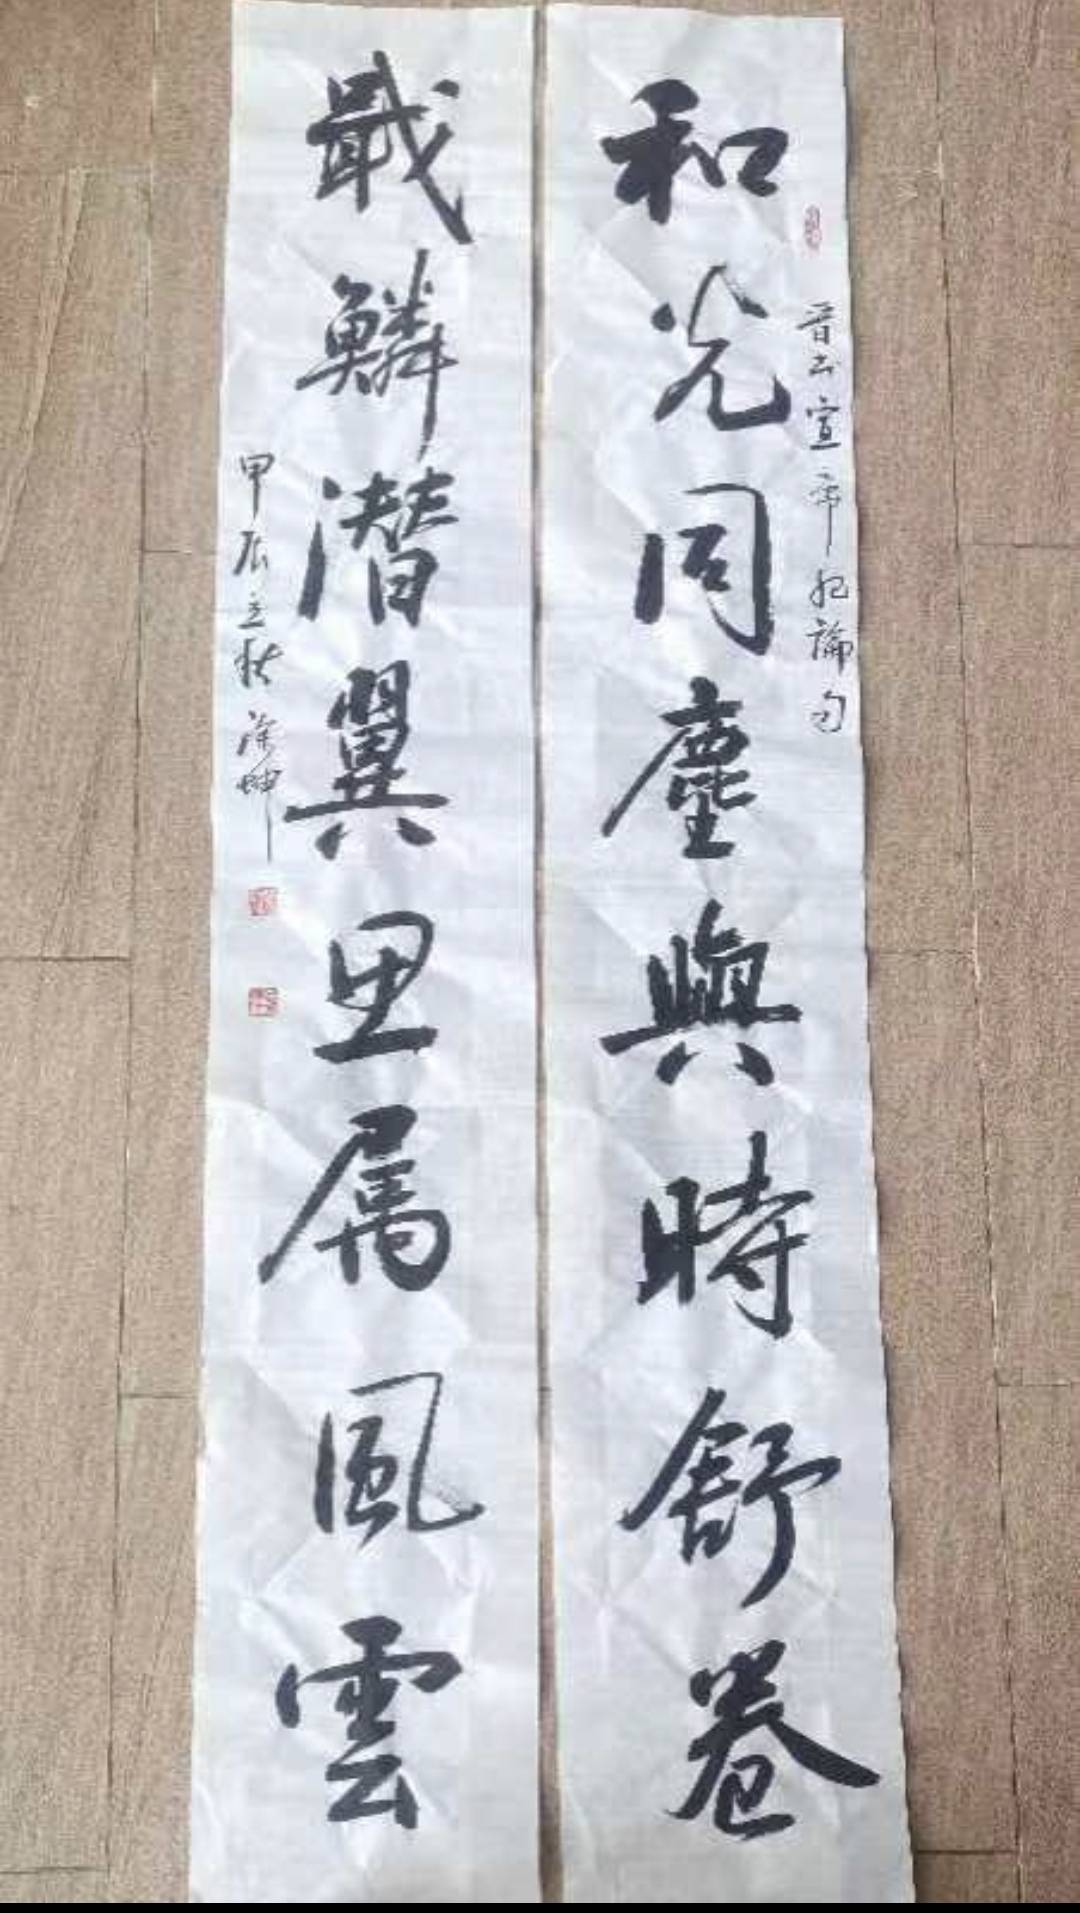 和光同塵與時舒卷
晋书宣帝紀論句
戢鱗潛翼思属風雲
甲辰立秋涂坤